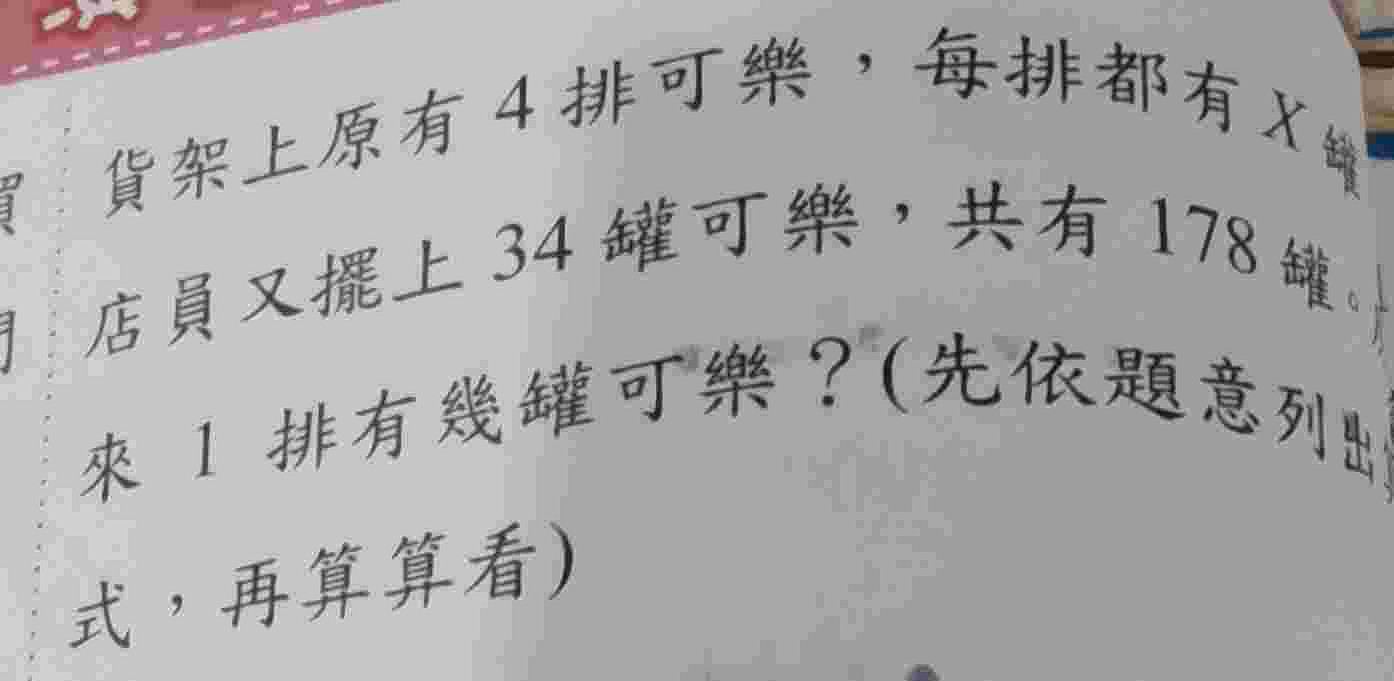 貨架上原有 4 排可樂，每排都有 X 罐
店員又擺上 34 罐可樂，共有 178 罐。
來 1 排有幾罐可樂？(先依題意列出
式，再算算看)